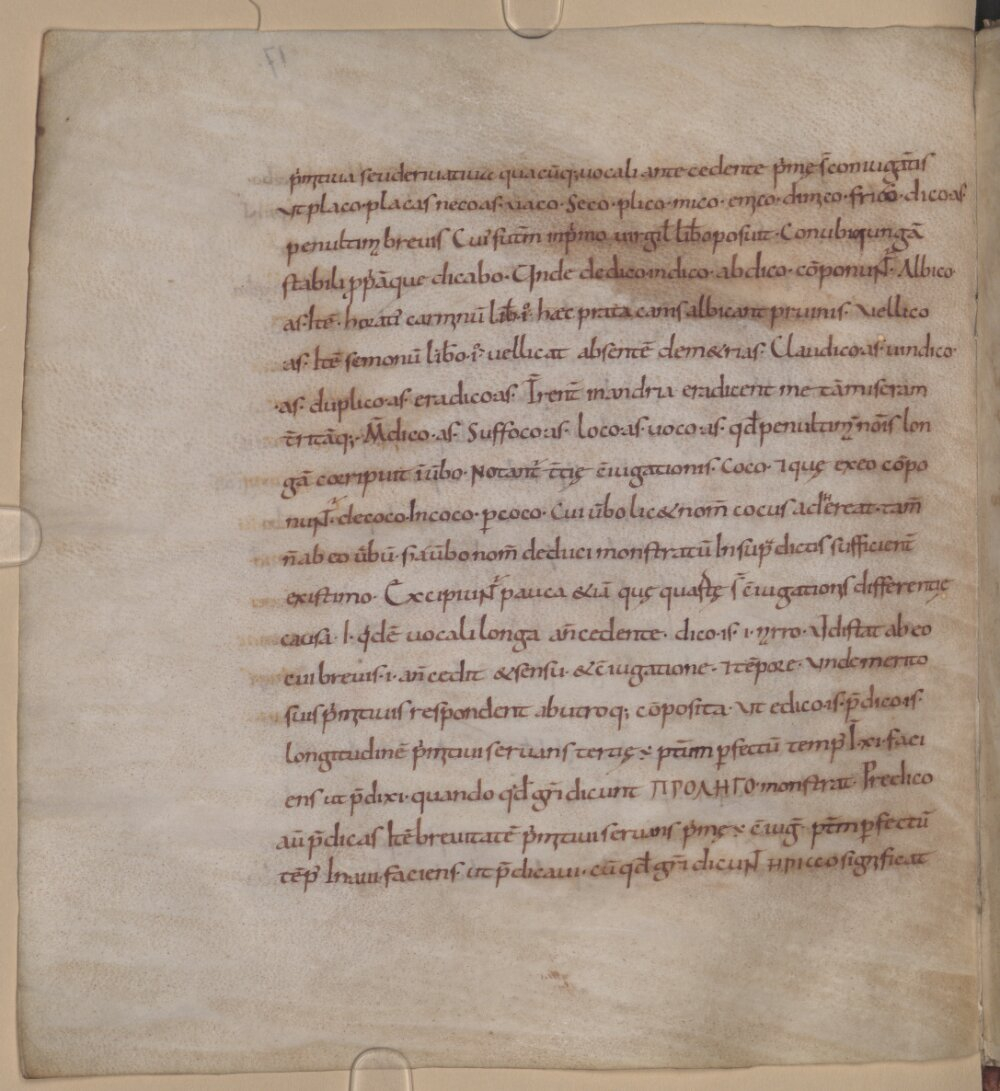 17
p̄mitiua seuderiuatiua quacūq; uocali ante cedente p̄mę s̄ coniugat̄is
ut placo· placas neco·as· uaco· Seco· plico· mico· emico· dimico· frico· dico·as
penultim̄ breuis Cui' sūtm inp̄mo uirgil̄ lib̄o posuit· Conubio iungā
stabili p̱p̱āque dicabo· Unde dedico· indico· abdico· cōponunt̄· Albico
as· Itē· horati' carminū lib̄· i° hæc prata canis albicant pruinis· Vellico
as· Itē semonū lib̄o· i° uellicat absentē dem&rias· Claudico·as· uindico·
·as· duplico·as· eradico·as· T̄rent̄ inandria eradicent me tāmiseram
t̄ritāq;· M̄dico·as· Suffoco·as· loco·as· uoco·as· qd̄ penultim̄ nōis lon
gā corripuit īūbo· Notant̄ t̄tię c̄iugationis· Coco· 7 quę exeo cōpo
nunt̄· decoco· Incoco· p̱coco· Cui ūbo lic& nom̄ cocus adhereat· tam̄
n̄ ab eo ūbū· s; a ūbo nom̄ deduci monstratū Insup̄dictis sufficient̄
existimo· Excipiunt̄ pauca &iā quę quartę s̄ c̄iugations differentię
causa· l· q̄dē uocali longa an̄cedente· dico·is· i· ηrro· Vl distat ab eo
cui breuis· i· an̄cedit &sensu· &c̄iugatione· 7 tēpore· Vnde merito
suis p̄mitiuis respondent abutroq; cōposita· Vt edico·is· p̄dico·is·
longitudinē p̄mitiui seruans tertię ÷ ptm̄ p̱fectū temp' I·xi· faci
ens ut p̄dixi· quando qd̄ gri dicunt ΠΡΟΛΗΓΟ· monstrat· Predico
aū p̄dicas Itē breuitatē p̄mitiui seruans p̄mę ÷ c̄iuḡ· ptm̄ p̱fectū
tēp' In aui· faciens· ut p̄dicaui· cū qd̄ gri dicunt̄ significat